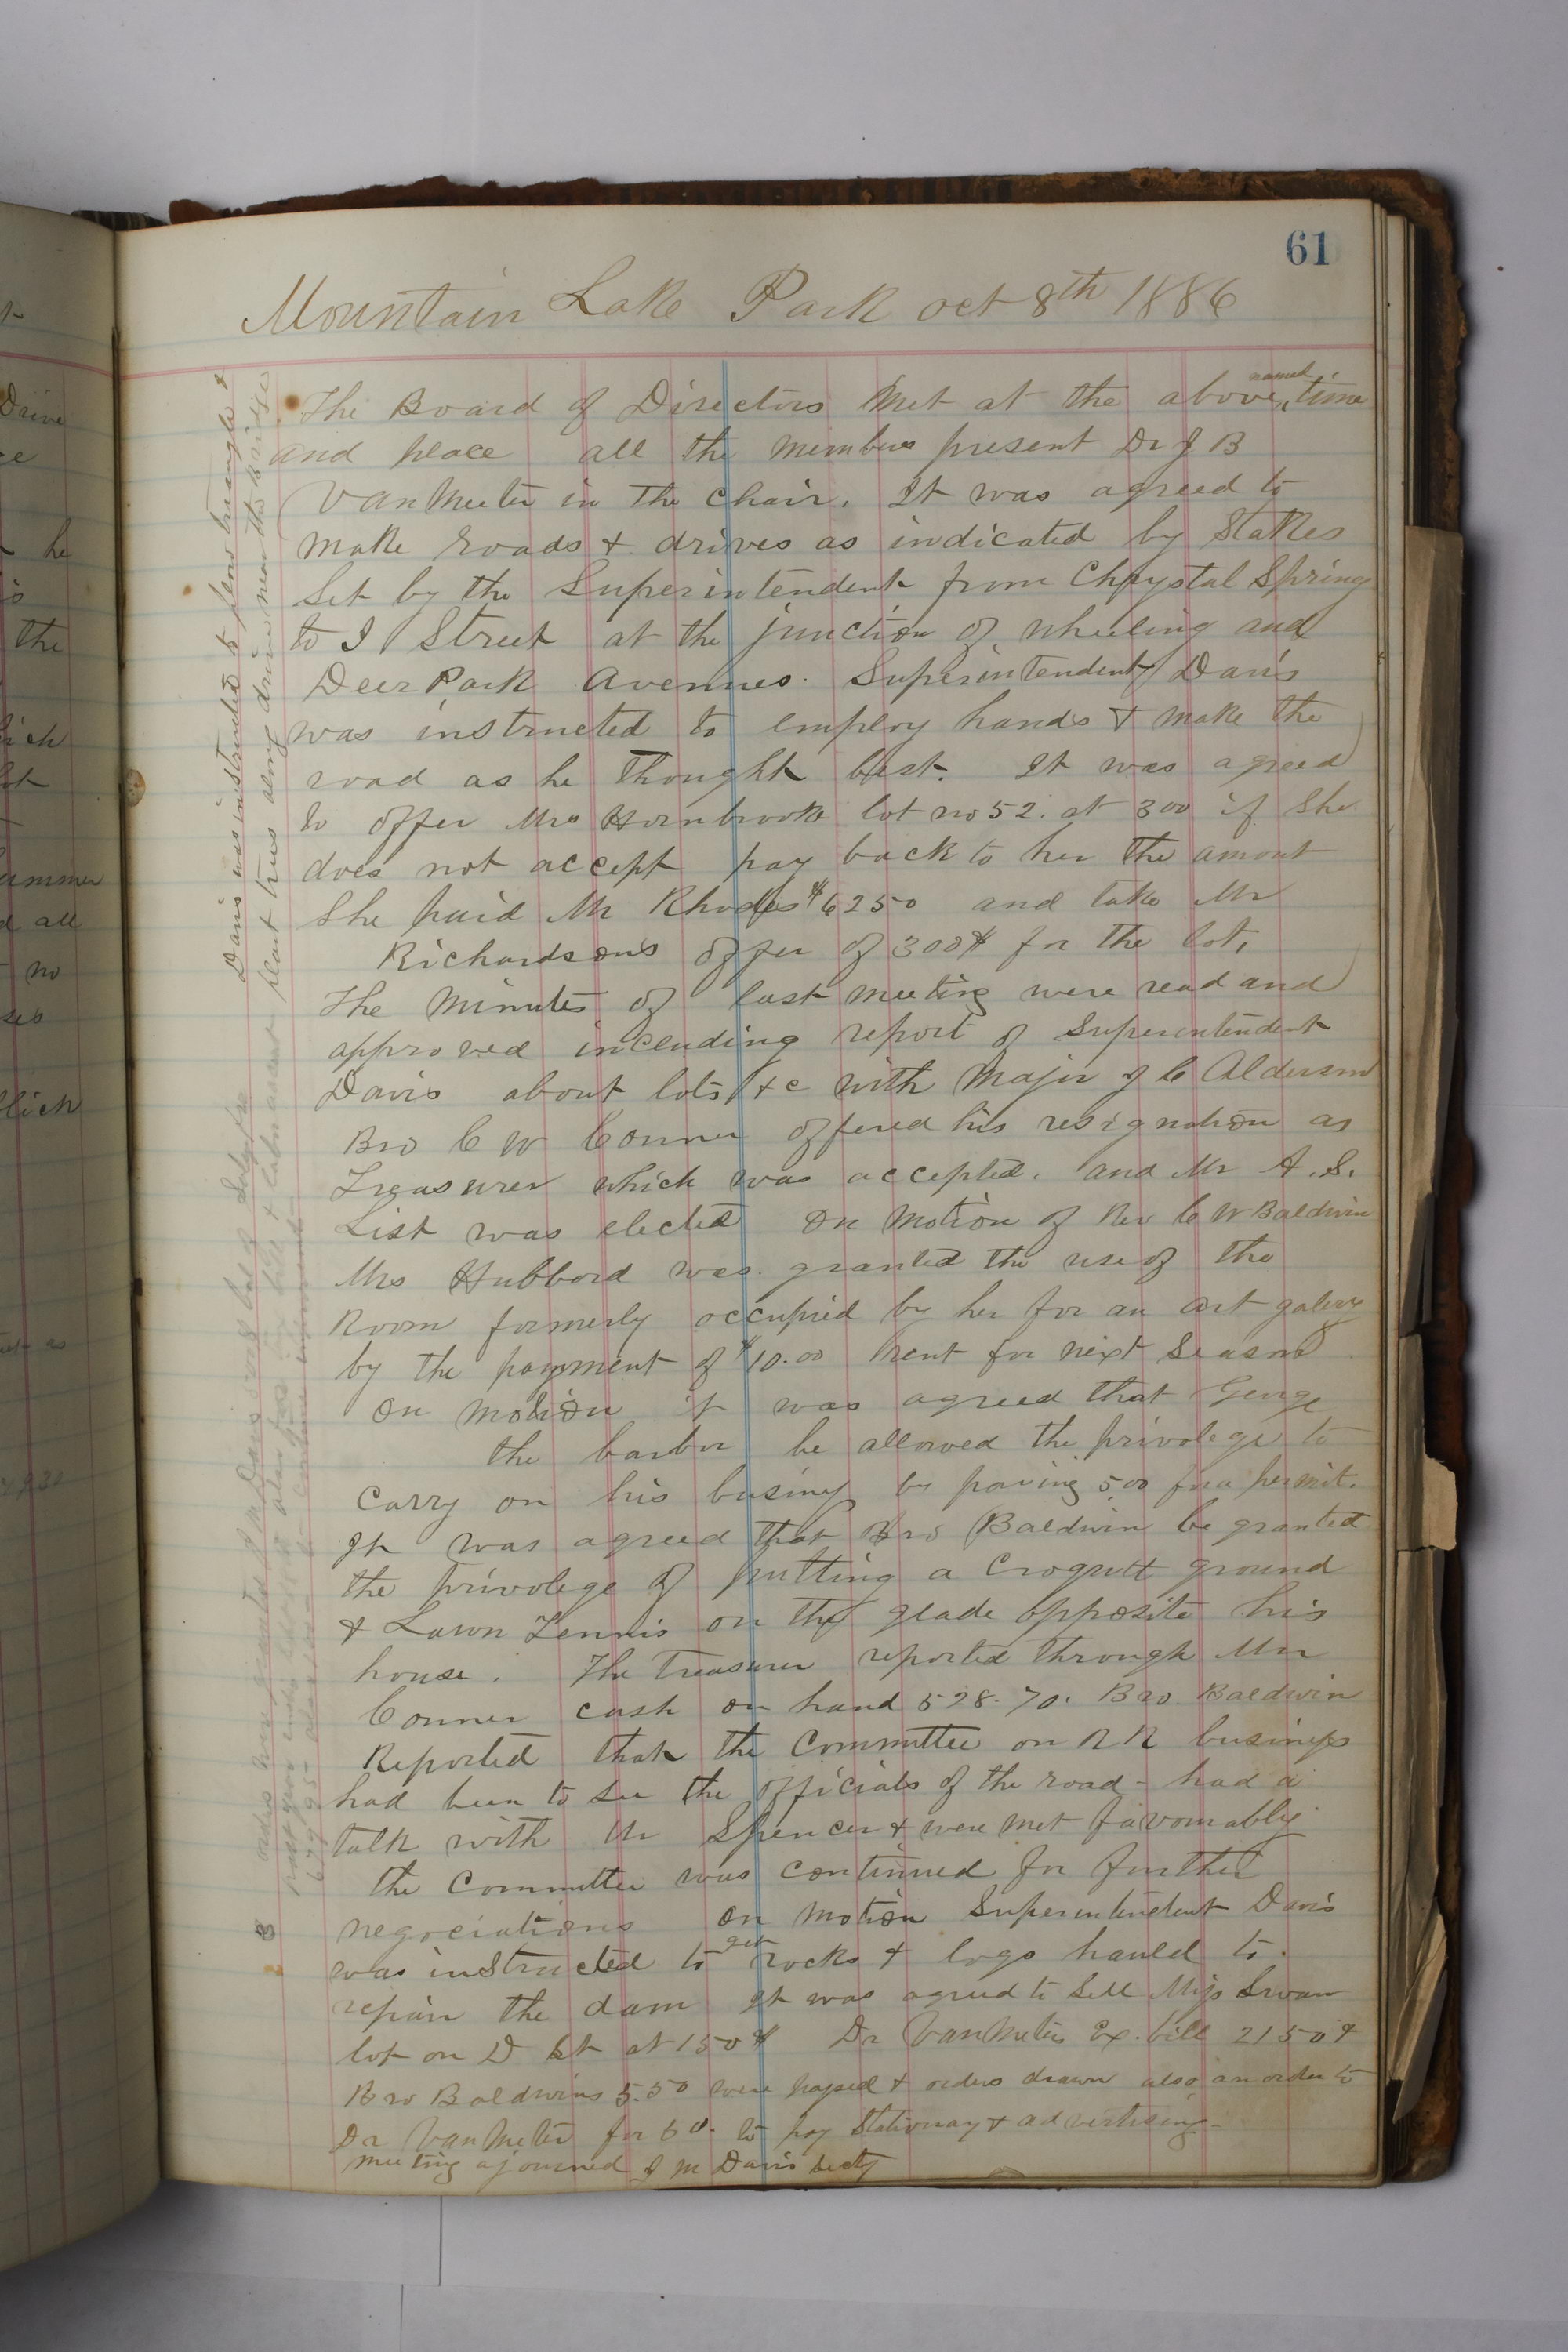 61
Mountain Lake Park oct 8th 1886
The Board of Directors Met at the above named time
and place all the members present Dr J B
VanMeter in the chair. It was agreed to
make roads & drives as indicated by Stakes
Set by the Superintendent from Chrystal Spring
to I Street at the junction of Wheeling and
Deer Park Avenues. Superintendent Davis
was instructed to employ hands & make the
road as he thought best. It was agreed
to offer Mrs Hornbrook lot no 52. at 300 if She
does not accept pay back to her the amout
She paid Mr Rhodes $6250 and take Mr
Richardsons offer of 300$ for the lot.
The Minutes of last meeting were read and
approved incending report of Superintendent
Davis about lots &c with Major J C Alderson
Bro C W Conner offered his resignation as
Treasurer which was accepted. and Mr A. S.
List was elected On Motion of Rev C W Baldwin
Mrs Hubbard was granted the use of the
Room formerly occupied by her for an art galery
by the payment of $10.00 Rent for next Season
On Motion it was agreed that George
the barber be allowed the privolege to
carry on his businss by paying 5.00 for a permit.
It was agreed that Bro Baldwin be granted
the privolege of putting a Croquett ground
& Lawn Tennis on the glade opposite his
house. The Treasurer reported through Mr
Conner cash on hand 528.70. Bro. Baldwin
Reported that the Committee on R R business
had been to see the officials of the road - had a
talk with Mr Spencer & were met favourably
the Committee was continued for further
negociations On Motion Superintendent Davis
was instructed to get rocks & logs hauled to
repair the dam It was agreed to Sell Miss Swan
lot on D St at 150$ Dr VanMeters Ex. bill 2150$
Bro Baldwins 5.50 were passed & orders drawn also an order to
Dr VanMeter for 50. to pay Stationary & advertising-
meeting ajourned J M Davis Secty
Davis was instructed to plow triangle &
plant trees along drive near the Bridge